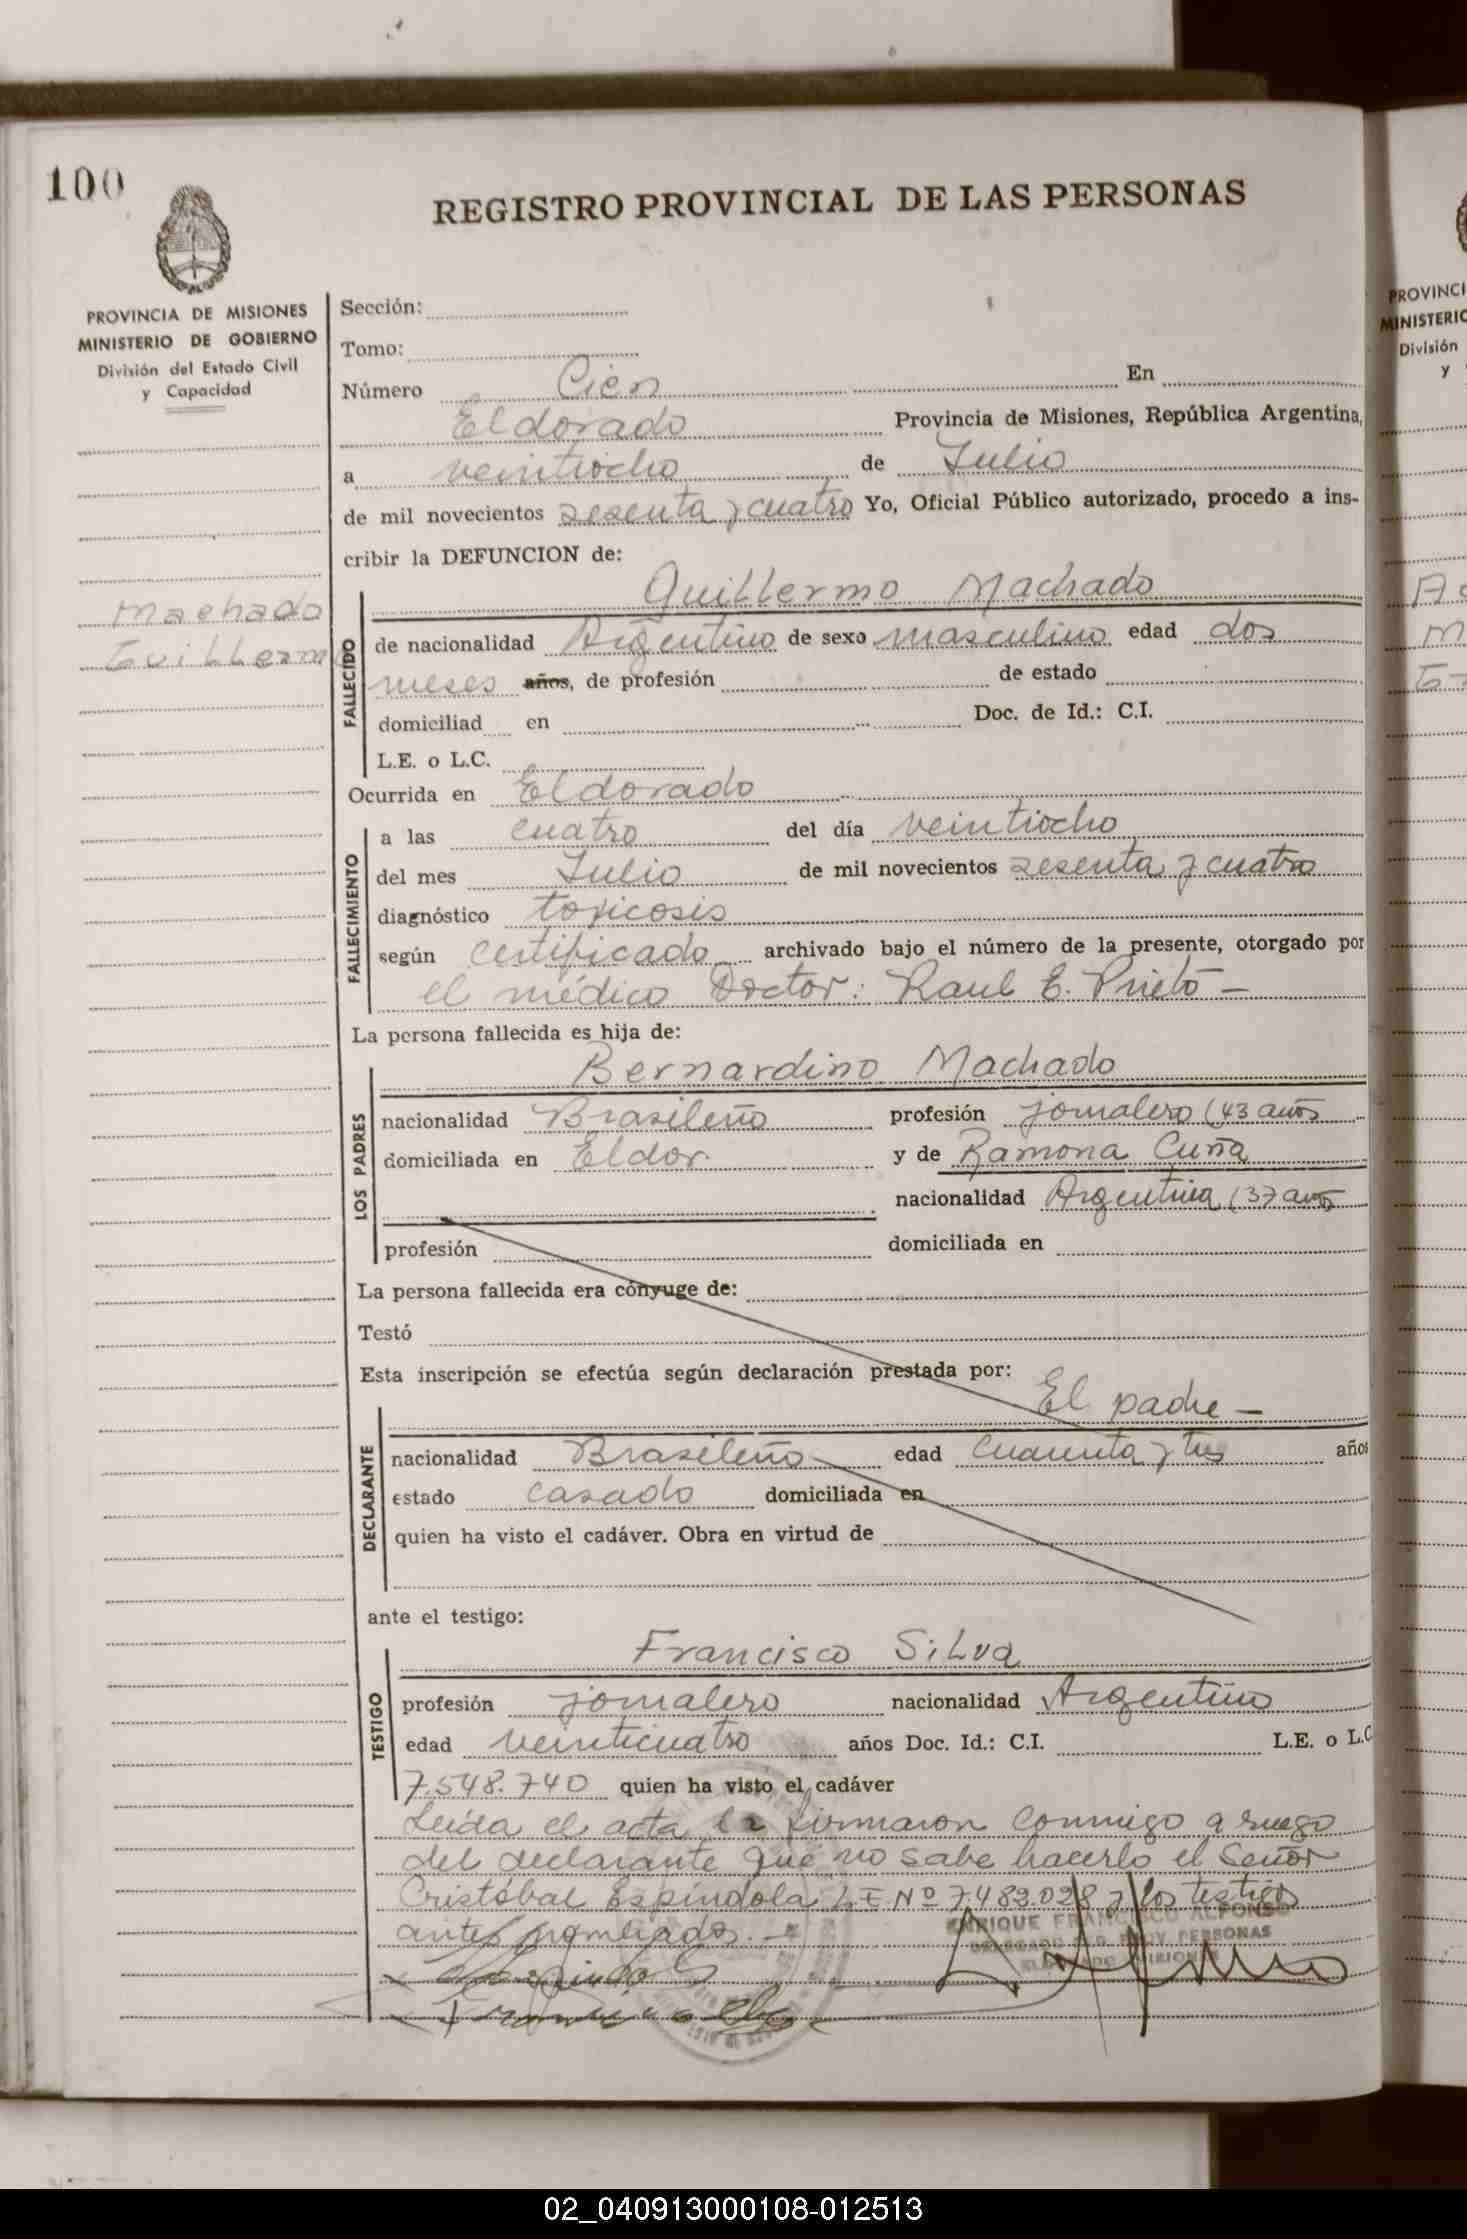 100
REGISTRO PROVINCIAL DE LAS PERSONAS
PROVINCIA DE MISIONES
MINISTERIO DE GOBIERNO
División del Estado Civil
y Capacidad
Machado
Guillerm
Sección:
Tomo:
Número Cien En
Eldorado Provincia de Misiones, República Argentina,
a veintiocho de Julio
de mil novecientos sesenta y cuatro Yo, Oficial Público autorizado, procedo a ins-
cribir la DEFUNCION de:
Guillermo Machado
FALLECIDO
de nacionalidad Argentino de sexo masculino edad dos
meses años, de profesión de estado
domiciliad en Doc. de Id.: C.I.
L.E. o L.C.
Ocurrida en Eldorado
FALLECIMIENTO
a las cuatro del día veintiocho
del mes Julio de mil novecientos sesenta y cuatro
diagnóstico toxicosis
según certificado archivado bajo el número de la presente, otorgado por
el médico Doctor: Raul E. Prieto -
La persona fallecida es hija de:
Bernardino Machado
LOS PADRES
nacionalidad Brasileño profesión jornalero (43 años
domiciliada en Eldor. y de Ramona Cuña
nacionalidad Argentina (37 años
profesión domiciliada en
La persona fallecida era cónyuge de:
Testó
Esta inscripción se efectúa según declaración prestada por:
El padre -
DECLARANTE
nacionalidad Brasileño edad cuarenta y tres años
estado casado domiciliada en
quien ha visto el cadáver. Obra en virtud de
ante el testigo:
Francisco Silva
TESTIGO
profesión jornalero nacionalidad Argentino
edad veinticuatro años Doc. Id.: C.I. L.E. o L.C
7.548.740 quien ha visto el cadáver
Leída el acta la firmaron conmigo a ruego
del declarante que no sabe hacerlo el Señor
Cristóbal Espíndola L.E. Nº 7.482.028 y los testigos
antes nombrados. -
ENRIQUE FRANCISCO ALFONSO
DELEGADO REG. PROV. PERSONAS
PROVINCI
MINISTERIO
División
y
02_040913000108-012513